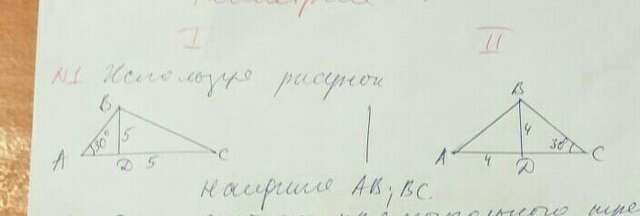 I II
№1 Используя рисунок
B B
30° 5 4 30°
A D 5 C A 4 D C
Найдите AB; BC.